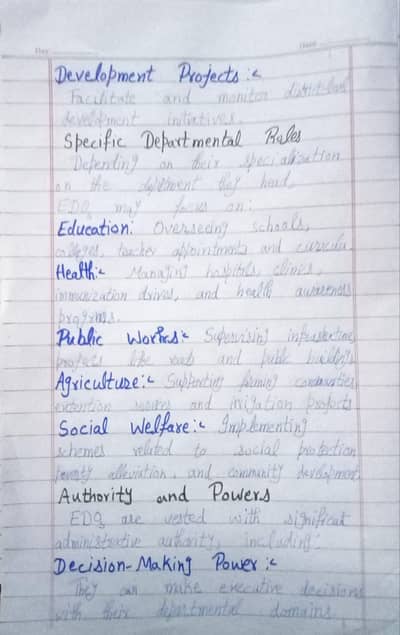 Day
Date
Development Projects :-
Facilitate and monitor district-level
development initiatives.
Specific Departmental Roles
Depending on their specialization
on the department they head,
EDOs may focus on:
Education: Overseeing schools,
colleges, teacher appointments and curricula.
Health:- Managing hospitals, clinics,
immunization drives, and health awareness
programs.
Public Works:- Supervising infrastructure
projects like roads and public buildings
Agriculture:- Supporting farming communities
extention and irrigation projects
Social Welfare:- Implementing
schemes related to social protection
poverty alleviation, and community development
Authority and Powers
EDOs are vested with significat
administrative authority, including:
Decision-Making Power :-
They can make executive decisions
with their departmental domains